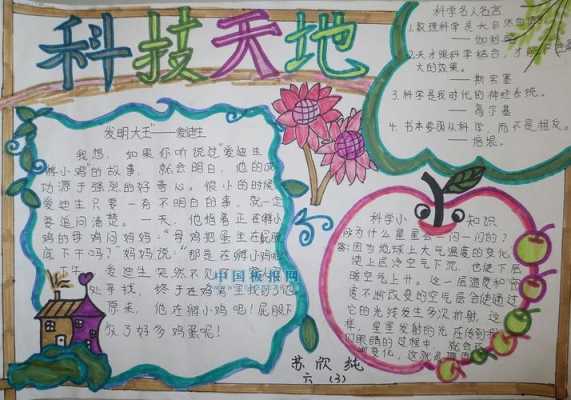 科技天地
发明大王"——爱迪生
我想，如果你听说过"爱迪生
孵小鸡"的故事，就会明白，他的成
功源于强烈的好奇心。很小的时候
爱迪生只要一有不明白的事，就一定
要追问清楚。一天，他指着正在孵小
鸡的母鸡问妈妈："母鸡把蛋坐在屁股
底下干吗？"妈妈说："那是在孵小鸡
爱迪生突然不见了
处寻找，终于在鸡窝里找到了他
原来，他在孵小鸡呢！屁股下
放了好多鸡蛋呢！
中国板报网
科学名人名言
1.数理科学是大自
——伽利略
2.天才跟科学结合，才能
大的效果。
——斯宾塞
3.科学是我时代的神经系统。
——高尔基
4.书本要跟从科学，而不是
——培根。
科学小知识
为什么星星会一闪一闪的？
答：因为地球上大气温度的变化
使上层冷空气下沉，也使下层
暖空气上升。这一层温度和密
度不断改变的空气层会使通过
它的光线发生多次折射，这
样，星星发射的光在传到
们眼睛的过程中，就会
苏欣纯
六（3）